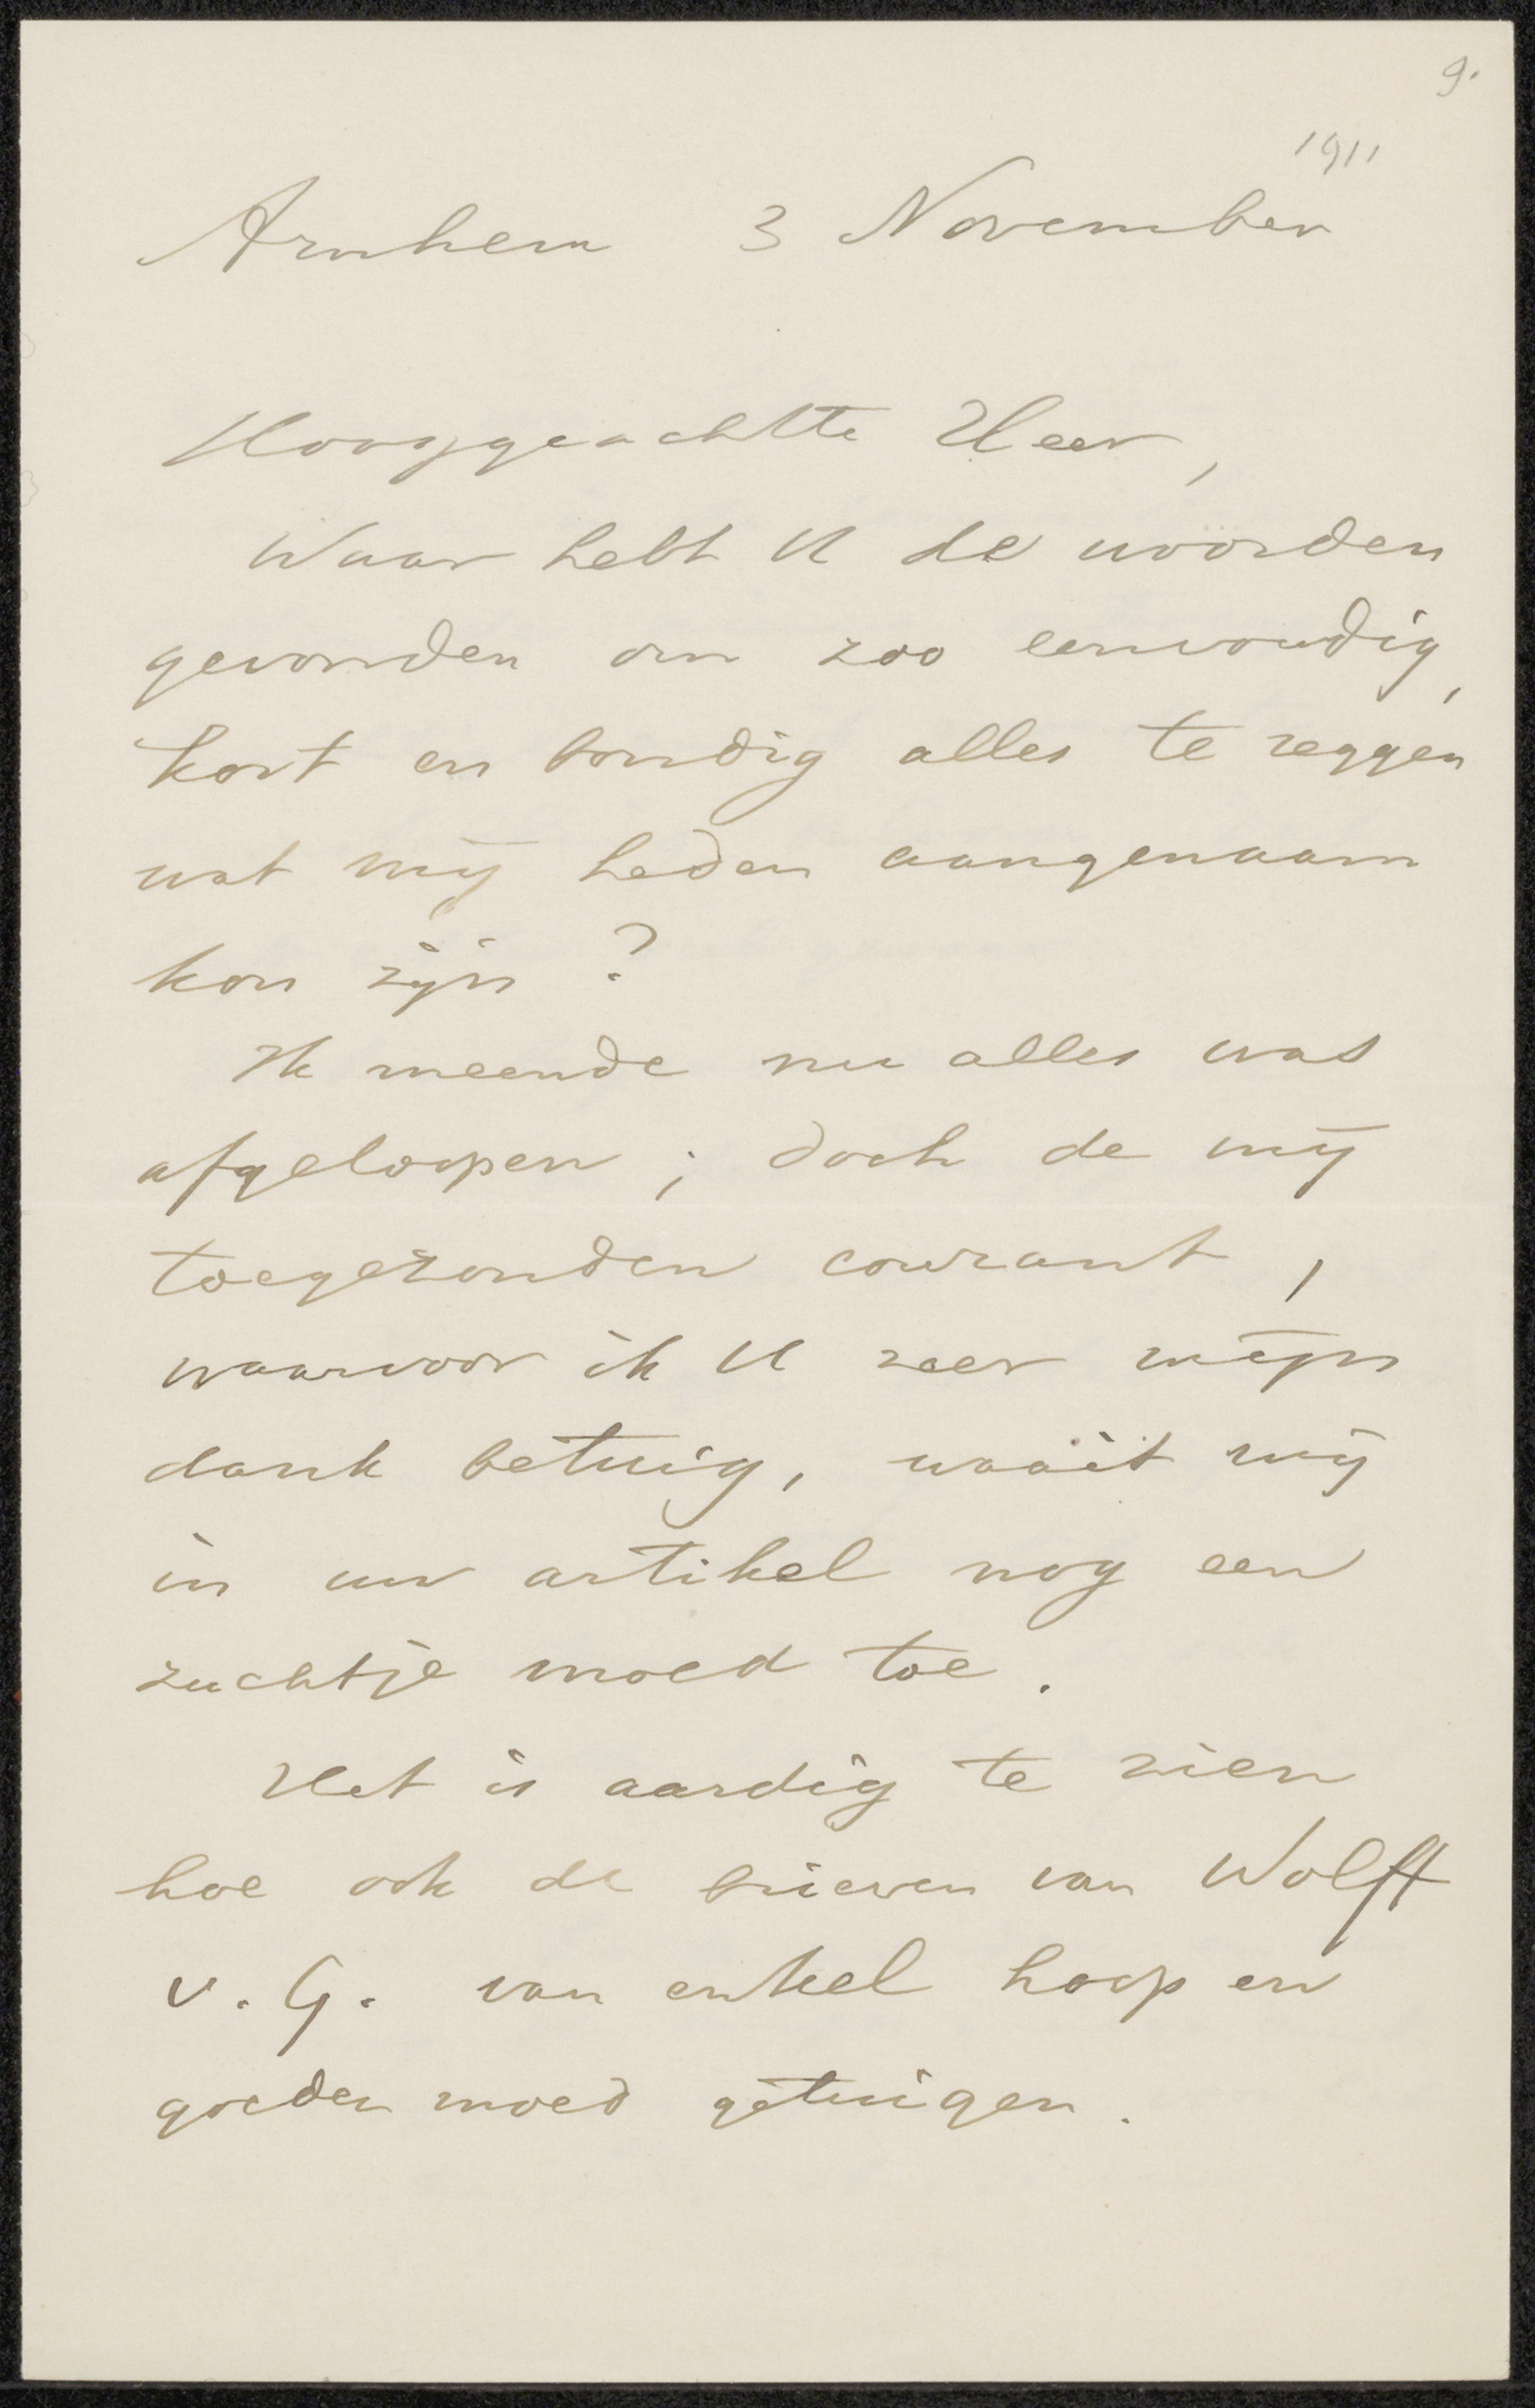 9.
1911
Arnhem 3 November
Hooggeachtte Heer,
Waar hebt U de woorden
gevonden om zoo eenvoudig,
kort en bondig alles te zeggen
wat mij heden aangenaam
kon zijn?
Ik meende nu alles was
afgeloopen; doch de mij
toegezonden courant,
waarvoor ik U zeer mijn
dank betuig, waait mij
in uw artikel nog een
zuchtje moed toe.
Het is aardig te zien
hoe ook de brieven van Wolft
v. G. van enkel hoop en
goeden moed getuigen.